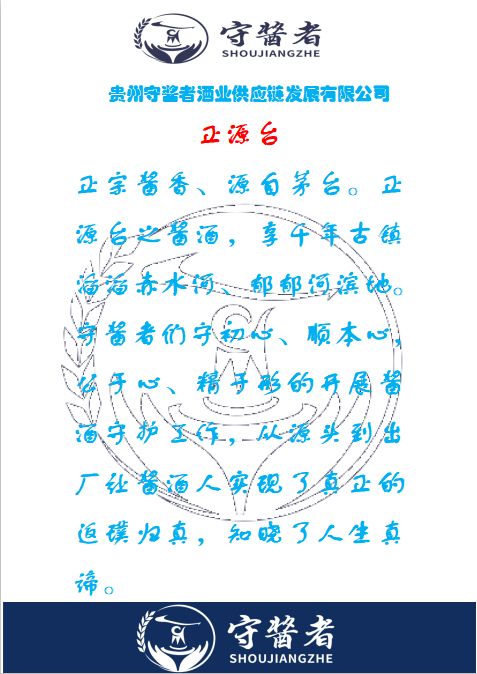 守酱者
SHOUJIANGZHE
贵州守酱者酒业供应链发展有限公司
正源台
正宗酱香、源自茅台。正
源台之酱酒，享千年古镇
滔滔赤水河、郁郁河滨地。
守酱者们守初心、顺本心，
公于心、精于形的开展酱
酒守护工作，从源头到出
厂让酱酒人实现了真正的
返璞归真，知晓了人生真
谛。
守酱者
SHOUJIANGZHE